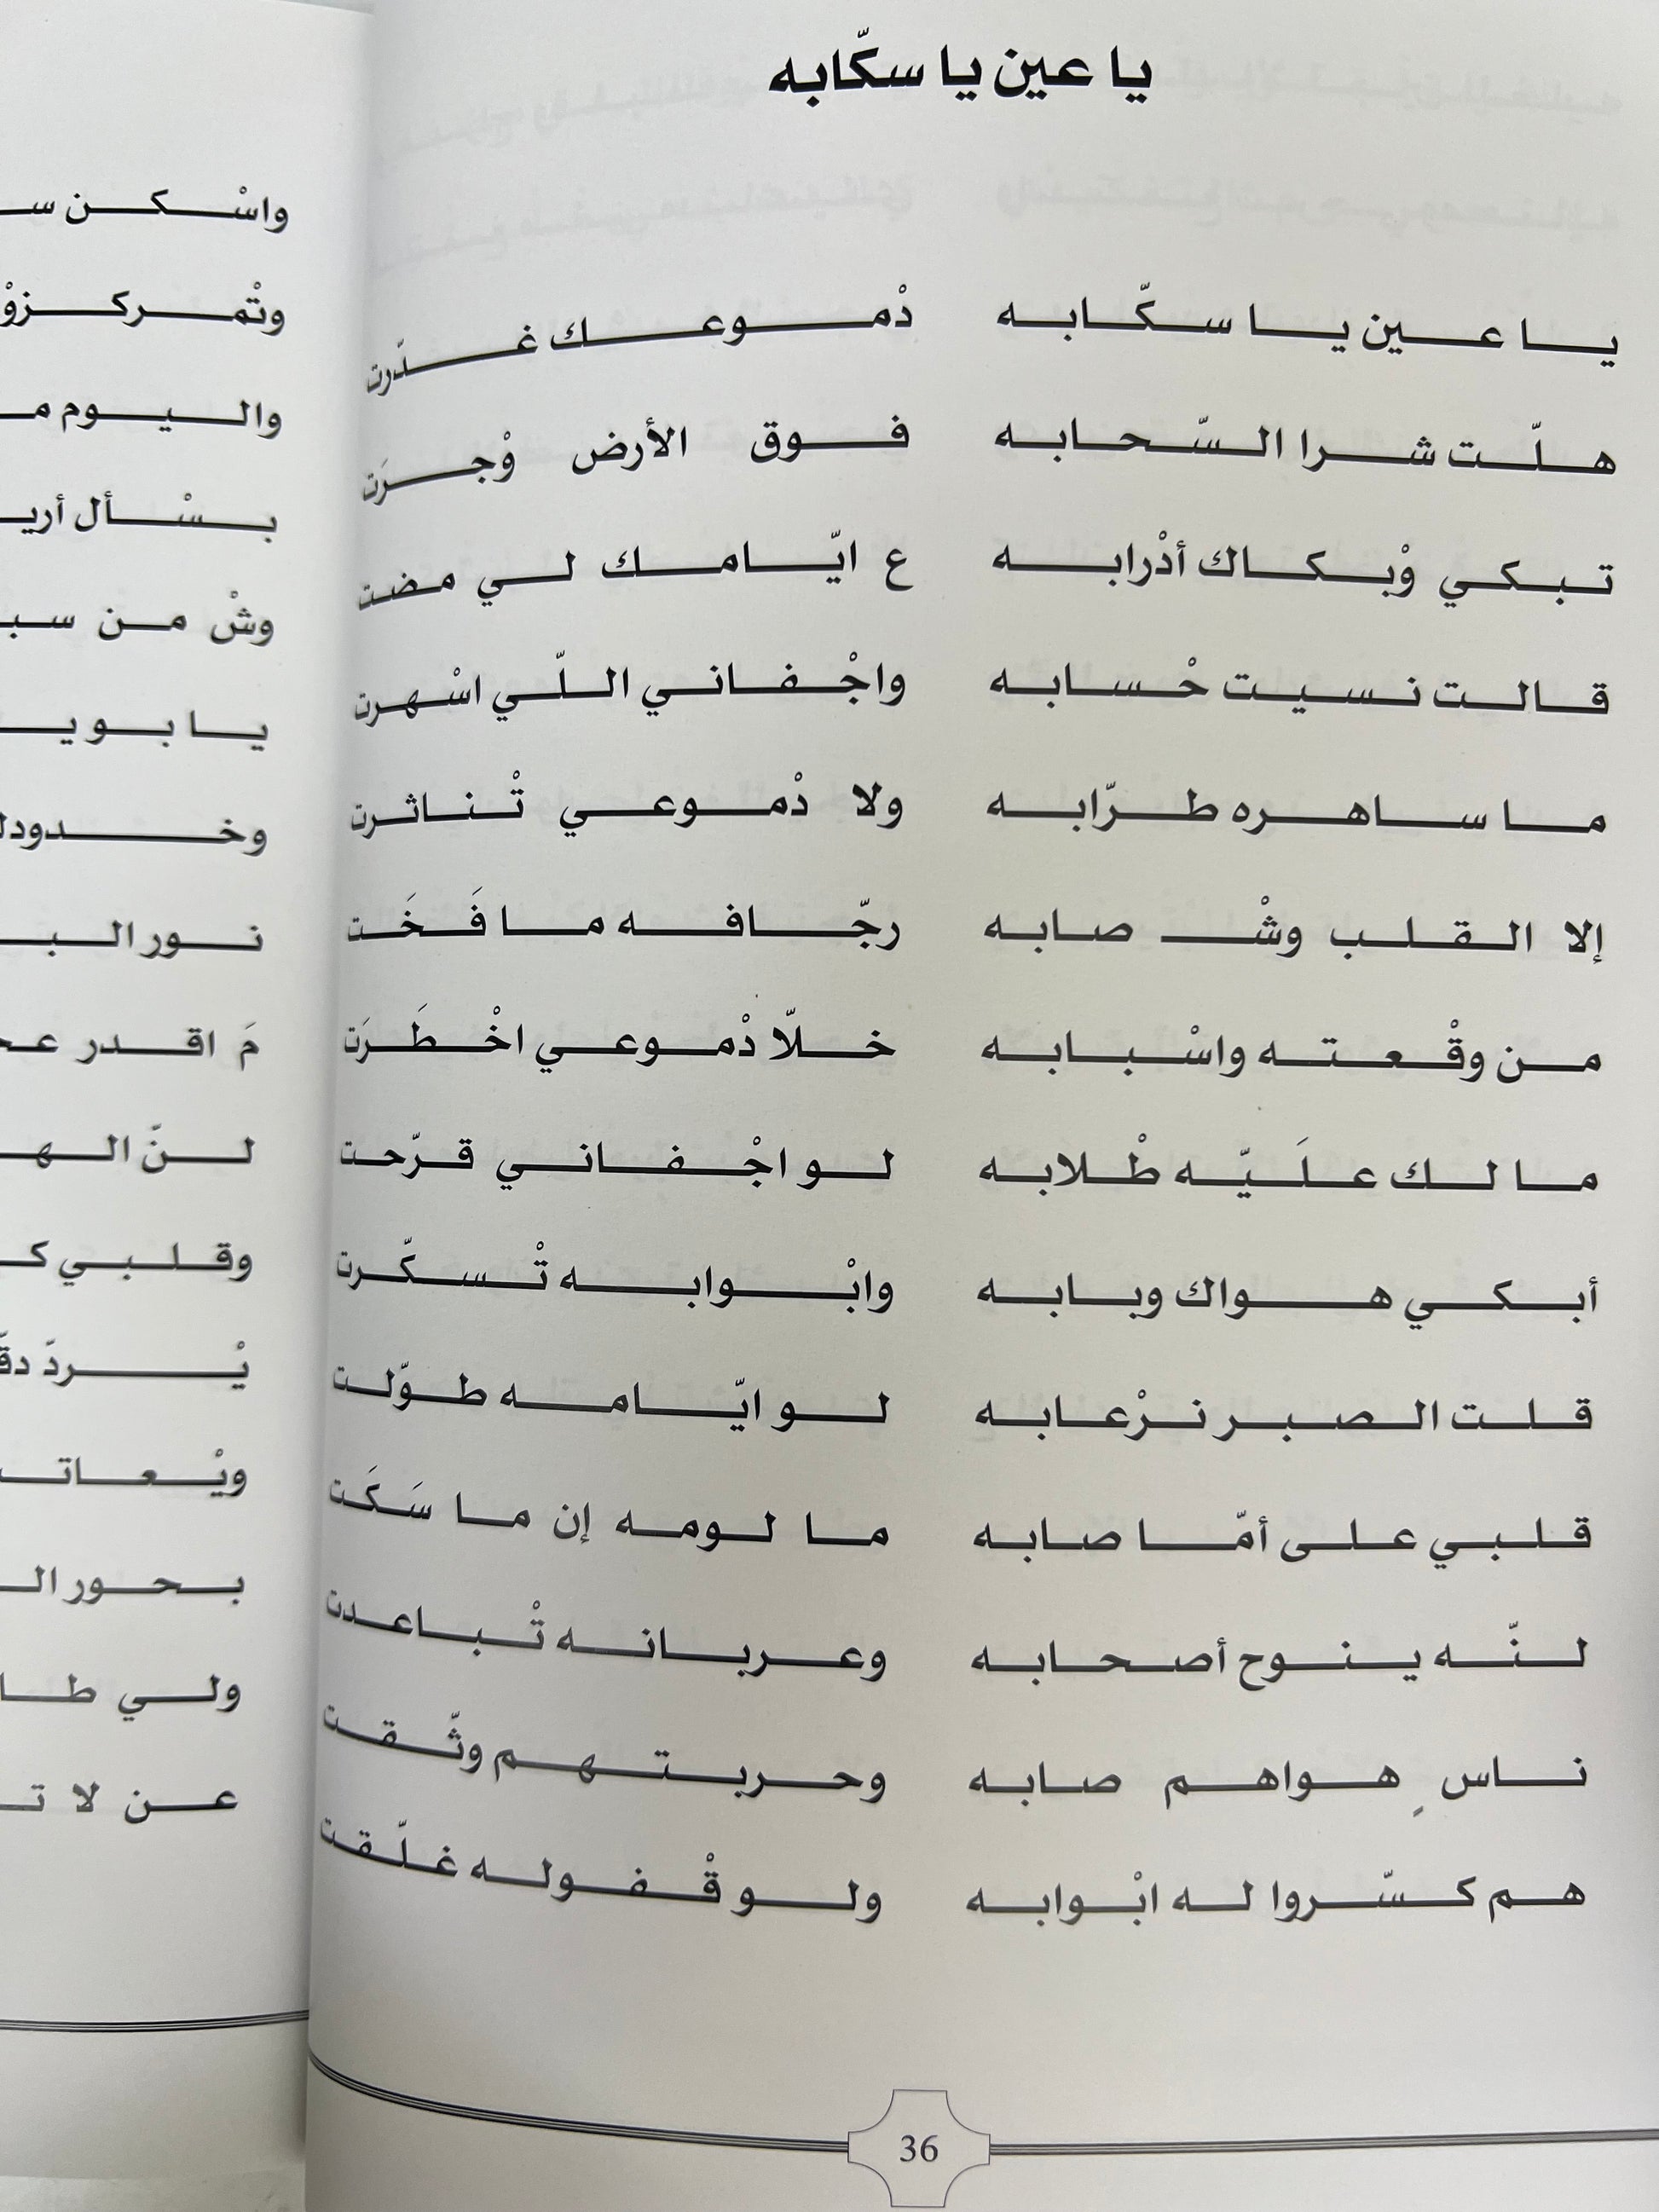 يا عين يا سكّابه
يا عين يا سكّابه دْموعك غدّرت
هلّت شرا السّحابه فوق الأرض وْجرَت
تبكي وْبكاك أدْرابه ع ايّامك لي مضت
قالت نسيت حْسابه واجْفاني اللّي اسْهرت
ما ساهره طرّابه ولا دْموعي تْناثرت
إلا القلب وشْ صابه رجّافه ما فَخَت
من وقْعته واسْبابه خلّا دْموعي اخْطَرَت
ما لك علَيّه طْلابه لو اجْفاني قرّحت
أبكي هواك وبابه وابْوابه تْسكّرت
قلت الصبر نرْعابه لو ايّامه طوّلت
قلبي على أمّا صابه ما لومه إن ما سَكَت
لنّه ينوح أصحابه وعربانه تْباعدت
ناسٍ هواهم صابه وحربتهم وثّقت
هم كسّروا له ابْوابه ولو قْفوله غلّقت
36
واسْكن
والـيوم
بسْأل
وشْ من
يا بو
نور
مَ اقدر
لنّ
وقلبي
يْردّ
بحور
ولي
عن لا